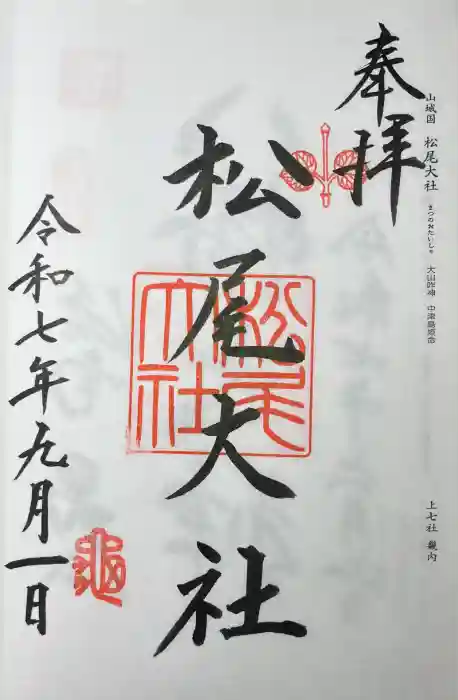 奉拝
山城国 松尾大社 まつのおたいしゃ 大山咋神 中津島姫命
上七社 畿内
松尾大社
松尾大社
令和七年九月一日